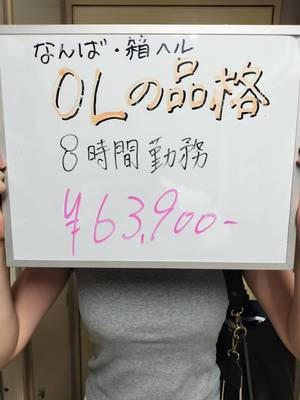 なんば・箱ヘル
OLの品格
8時間勤務
¥63,900-